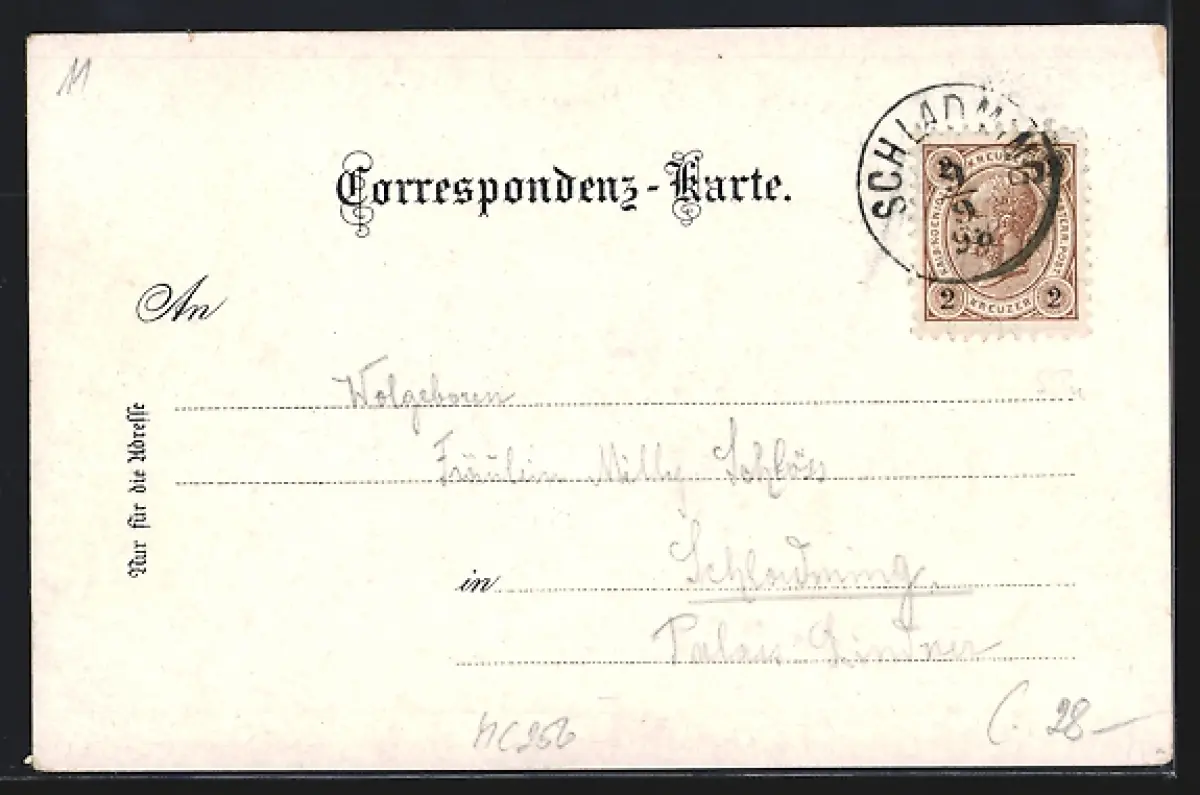 11
Correspondenz-Karte.
SCHLADMING
9
98
KREUZER
2 2
KREUZER
An
Nur für die Adresse
Wolgeboren
Fräulein Milly Schlöss
in Schladming.
Palais Lindner
28-